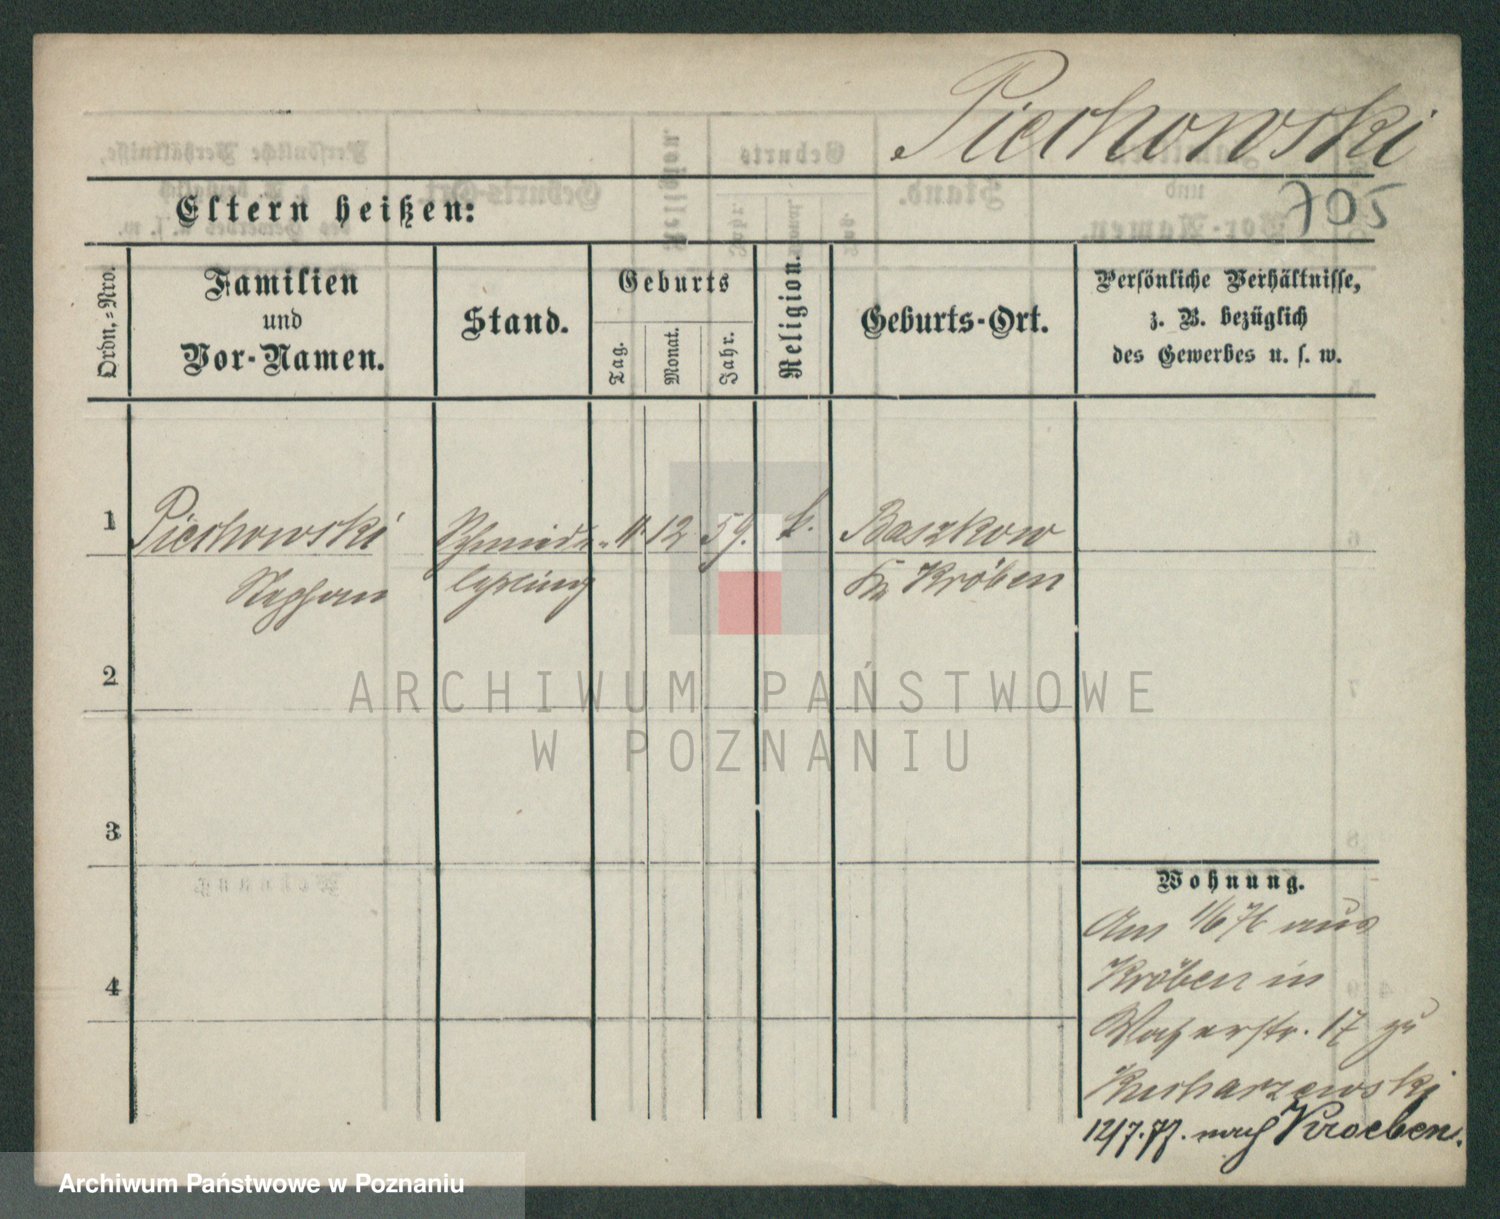 Piechowski
705
Eltern heißen:
Ordn.-Nro.
Familien
und
Vor-Namen.
Stand.
Geburts
Tag.
Monat.
Jahr.
Religion.
Geburts-Ort.
Persönliche Verhältnisse,
z. B. bezüglich
des Gewerbes u. s. w.
1
Piechowski
Stephan
Schmiede-
lehrling
11. 12 59.
k.
Baszkow
Kr. Kröben
2
3
4
Wohnung.
Am 1/6 76 aus
Kröben in
Wasserstr. 17 zu
Kucharzewski
12/7.77. nach Kroeben.
ARCHIWUM PAŃSTWOWE
W POZNANIU
Archiwum Państwowe w Poznaniu